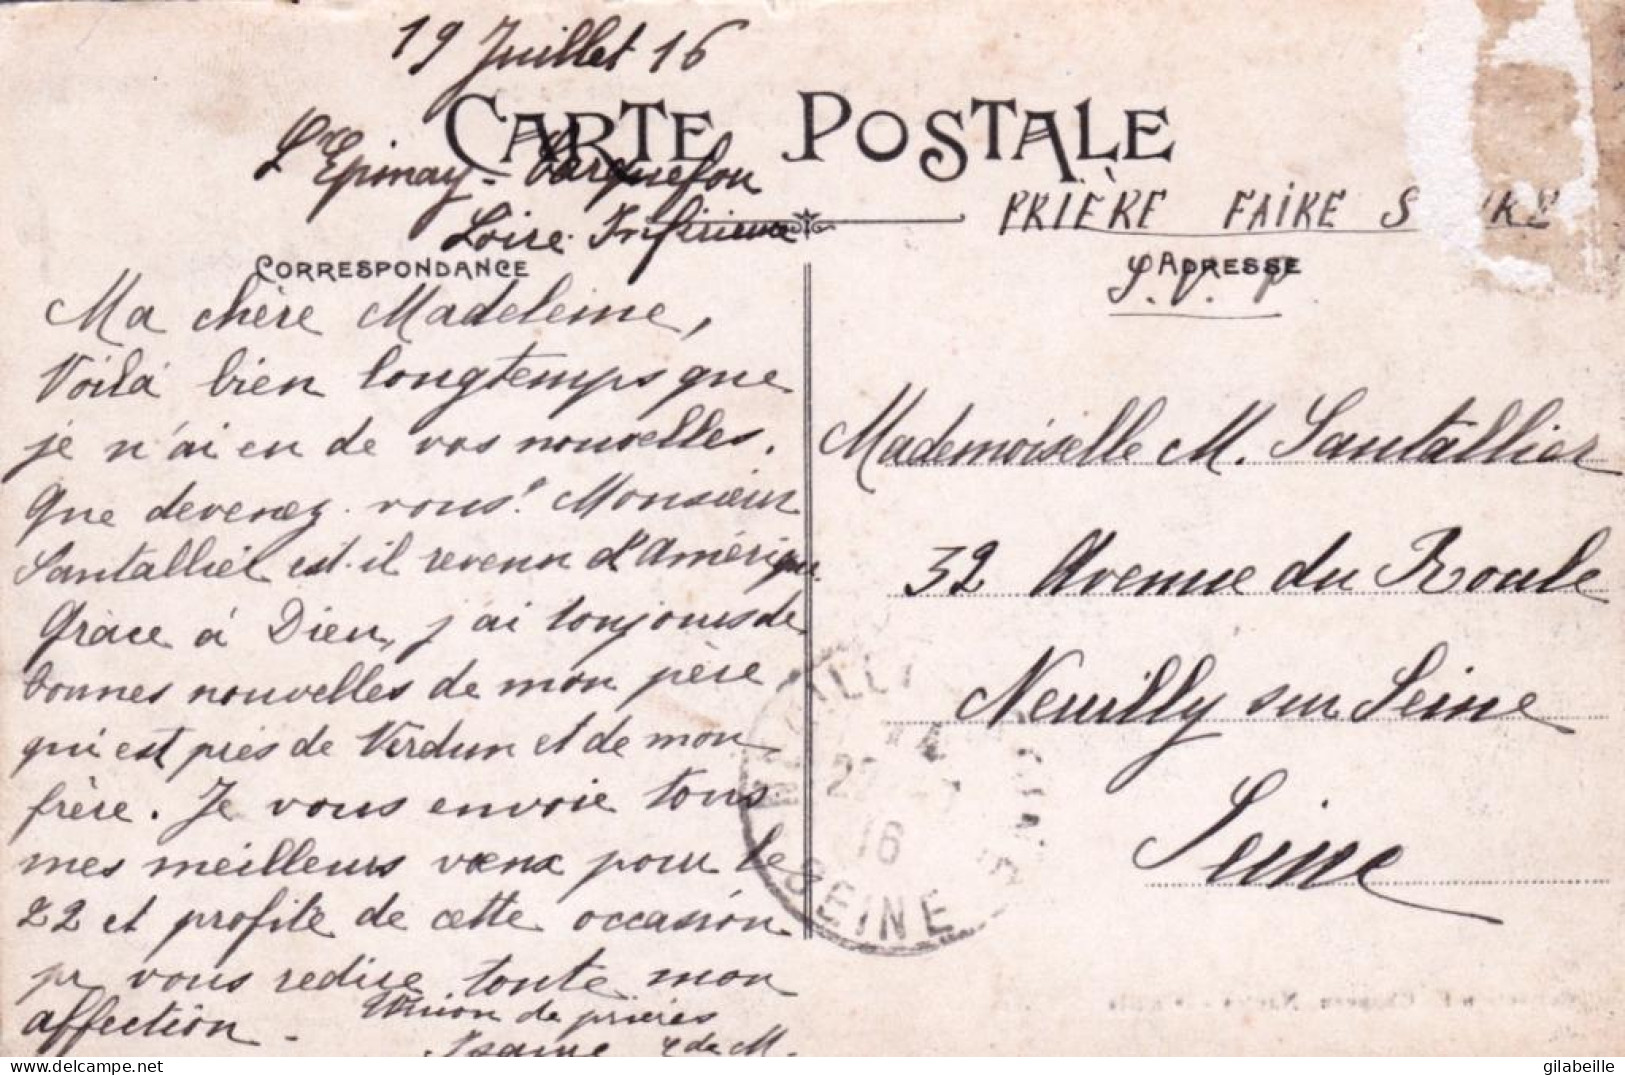 19 Juillet 16
CARTE POSTALE
L'Epinay - Carquefou
Loire Inférieure
PRIÈRE FAIRE S
S.V.P
CORRESPONDANCE
ADRESSE
Ma chère Madeleine,
Voilà bien longtemps que
je n'ai eu de vos nouvelles.
Que devenez-vous? Monsieur
Santallier est-il revenu d'Amérique
Grâce à Dieu, j'ai toujours de
bonnes nouvelles de mon père
qui est près de Verdun et de mon
frère. Je vous envoie tous
mes meilleurs vœux pour le
22 et profite de cette occasion
pr vous redire toute mon
affection -
Union de prières
de M.
Mademoiselle M. Santallier
32 Avenue du Roule
Neuilly sur Seine
Seine
22
16
SEINE
gilabeille